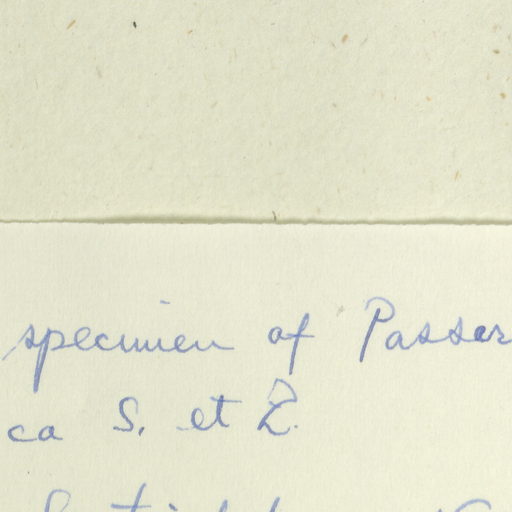 specimen of Passer
ca S. et Z.